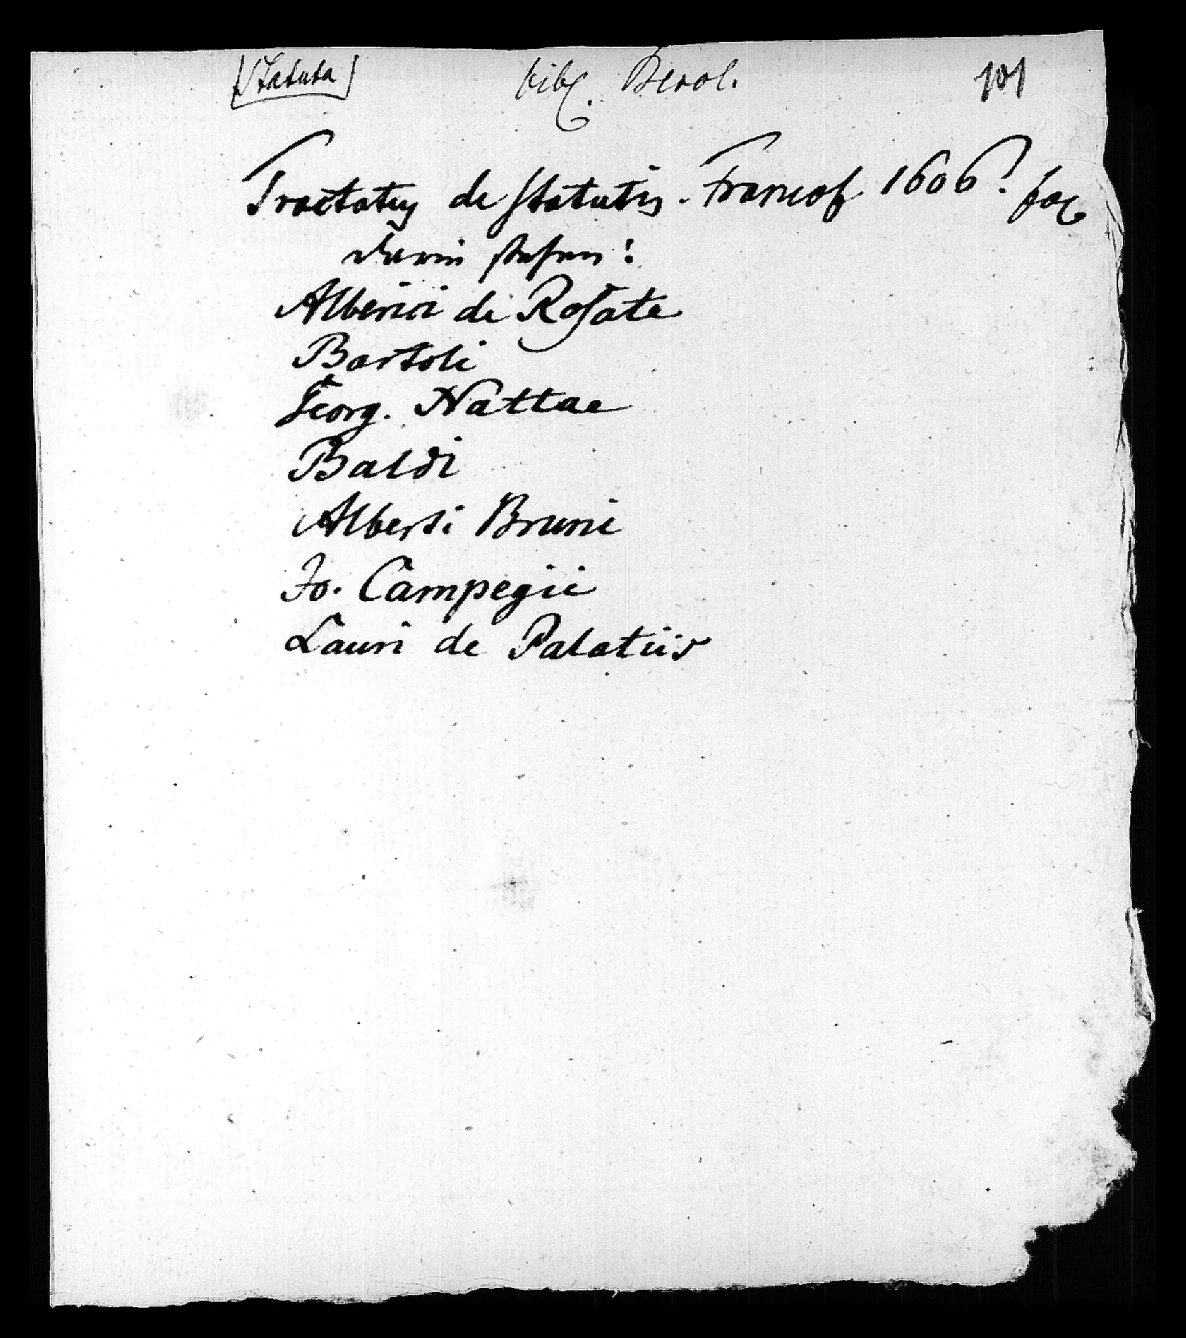 [Statuta] bibl. Berol. 101
Tractatus de statutis. Francof 1606. fol
darin stehen:
Alberici de Rosate
Bartoli
Georg. Nattae
Baldi
Alberti Bruni
Jo. Campegii
Lauri de Palatiis